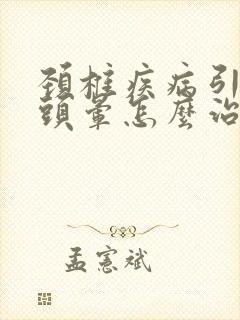 頚椎疾病引
頭暈怎麼治
孟憲斌